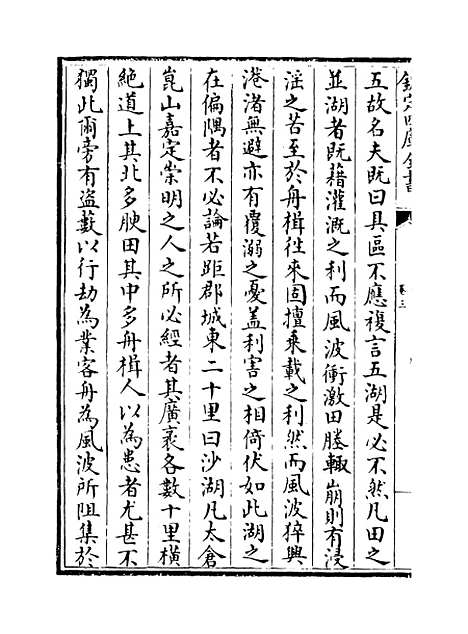 欽定四庫全書
卷三
五故名夫既曰具區不應複言五湖是必不然凡田之
並湖者既藉灌溉之利而風波衝激田塍輙崩則有浸
淫之苦至於舟楫徃來固擅乗載之利然而風波猝興
港渚無避亦有覆溺之憂蓋利害之相倚伏如此湖之
在偏隅者不必論若距郡城東二十里曰沙湖凡太倉
崑山嘉定崇明之人之所必經者其廣袤各數十里橫
絶道上其北多腴田其中多舟楫人以為患者尤甚不
獨此爾旁有盗藪以行劫為業客舟為風波所阻集於